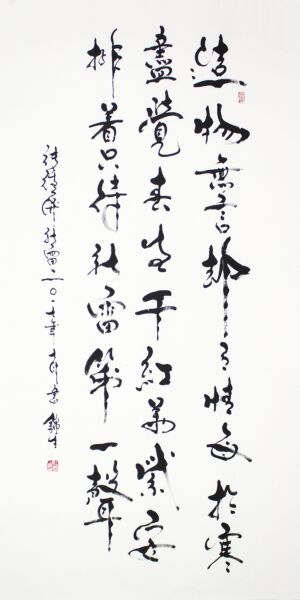 造物無言卻有情每於寒
盡覺春生千紅萬紫安
排着只待新雷第一聲
張維屏新雷二〇一七年